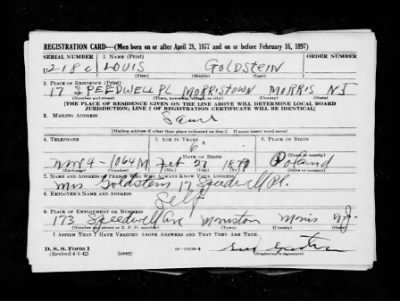 REGISTRATION CARD—(Men born on or after April 28, 1877 and on or before February 16, 1897)
SERIAL NUMBER 1. NAME (Print)
U 218 LOUIS GOLDSTEIN
(First) (Middle) (Last)
2. PLACE OF RESIDENCE (Print)
17 SPEEDWELL PL MORRISTOWN MORRIS NJ
(Number and street) (Town, township, village, or city) (County) (State)
[THE PLACE OF RESIDENCE GIVEN ON THE LINE ABOVE WILL DETERMINE LOCAL BOARD
JURISDICTION; LINE 2 OF REGISTRATION CERTIFICATE WILL BE IDENTICAL]
3. MAILING ADDRESS
Same
[Mailing address if other than place indicated on line 2. If same insert word same]
4. TELEPHONE 5. AGE IN YEARS 6. PLACE OF BIRTH
DATE OF BIRTH
4-1064M Feb 27 Poland
7. NAME AND ADDRESS OF PERSON WHO WILL ALWAYS KNOW YOUR ADDRESS
Mrs Goldstein 17 Speedwell Pl.
8. EMPLOYER'S NAME AND ADDRESS
Self
9. PLACE OF EMPLOYMENT OR BUSINESS
173 Speedwell Ave Morris N.J.
(Number and street or R. F. D. number) (Town) (County) (State)
I AFFIRM THAT I HAVE VERIFIED ABOVE ANSWERS AND THAT THEY ARE TRUE.
D. S. S. Form 1
(Revised 4-1-42) (over)
(Registrant's signature)